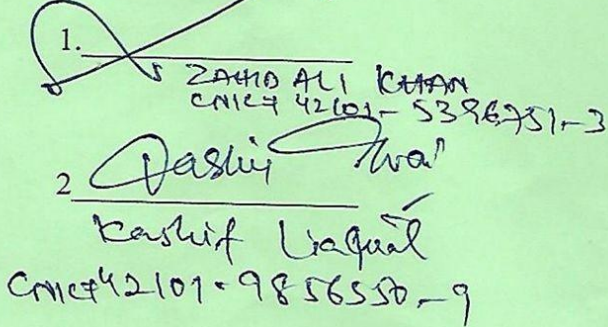 1.
ZAHID ALI KHAN
CNIC# 42101-5396751-3
2
Kashif Liaquat
CNIC# 42101-9856550-9